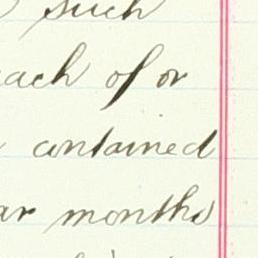 such
each of or
contained
months